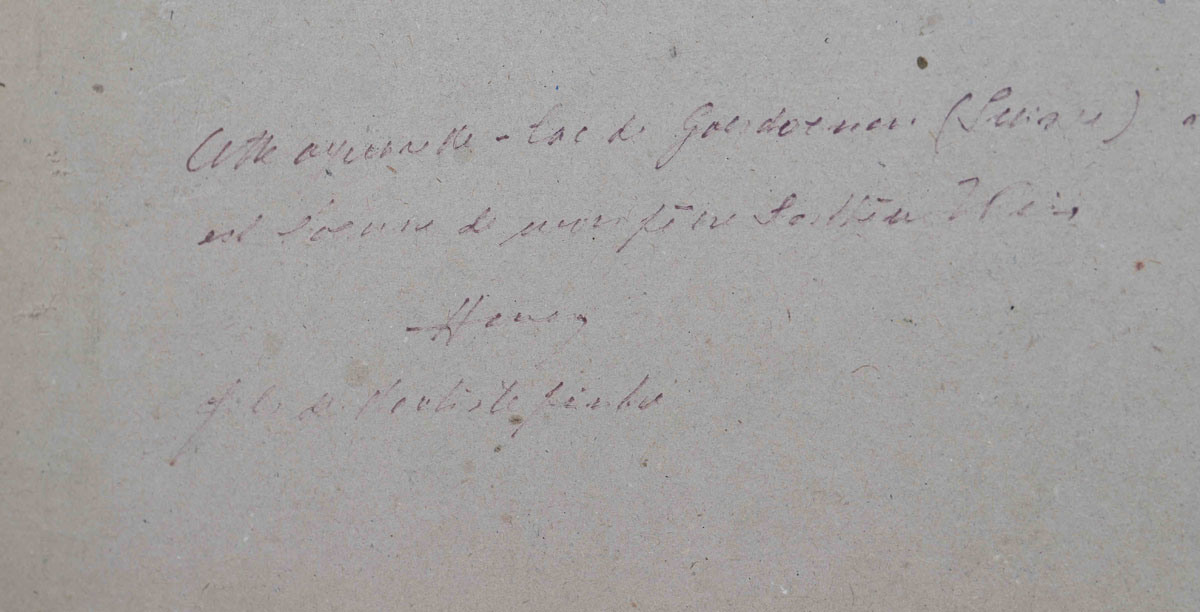 Cette aquarelle - Lac de (Suisse)
est l'oeuvre de mon père
Henry
fils de l'artiste peintre